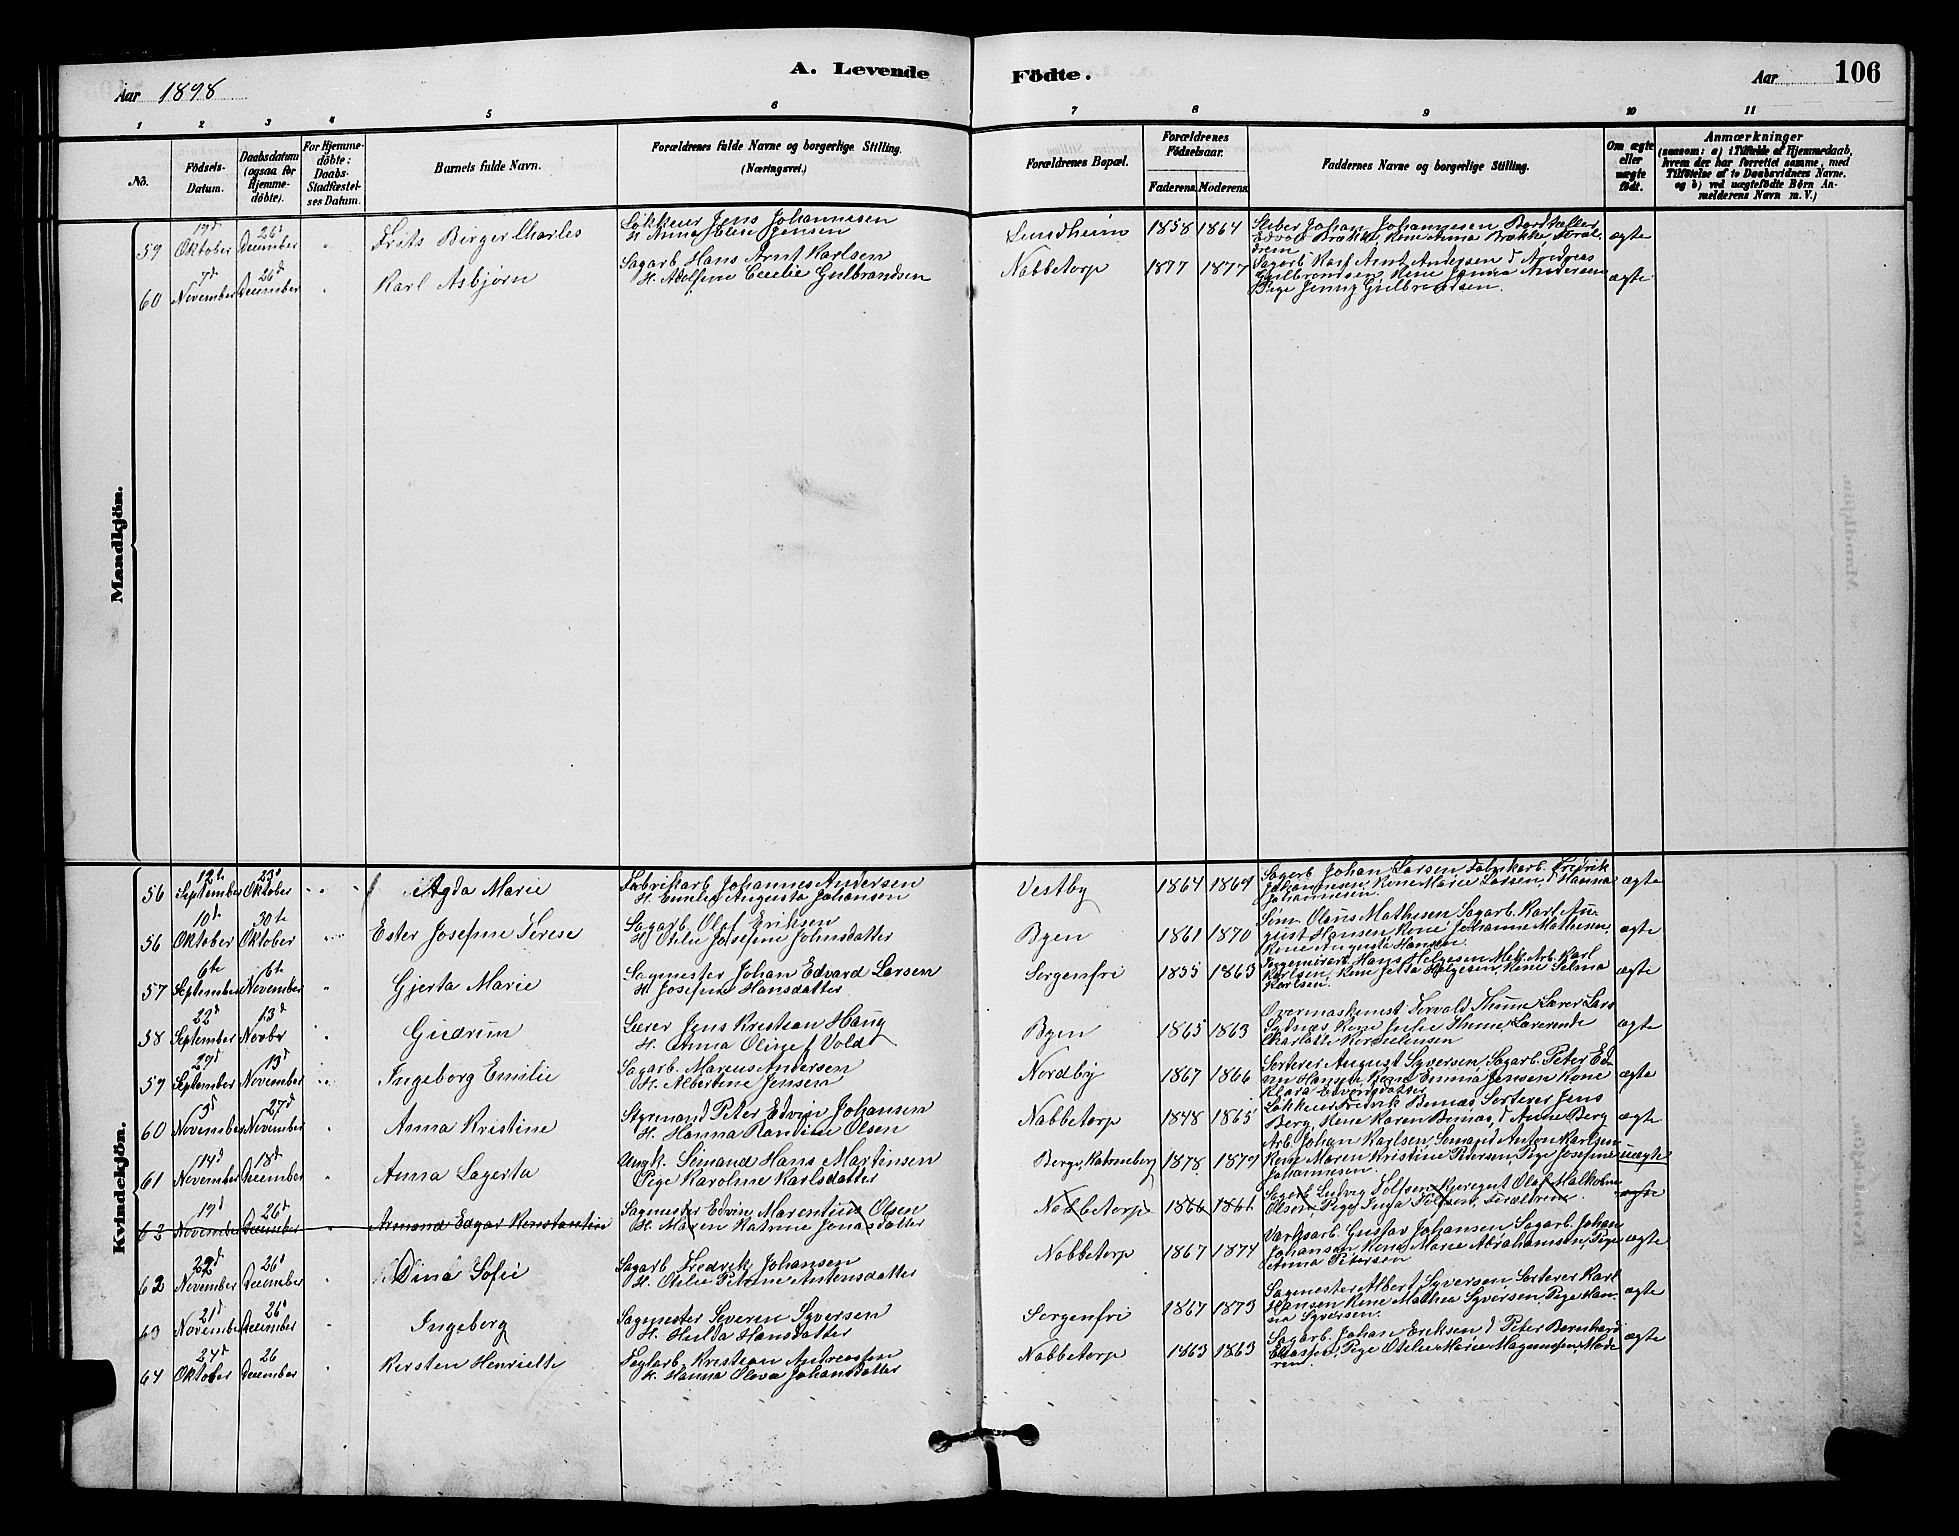 A. Levende Födte.
Aar 1898
Aar 106
1 2 3 4 5 6 7 8 9 10 11
No.
Födsels-Datum.
Daabsdatum (ogsaa for Hjemme-döbte).
For Hjemme-döbte: Daabs-Stadfæstel-ses Datum.
Barnets fulde Navn.
Forældrenes fulde Navne og borgerlige Stilling. (Næringsvei.)
Forældrenes Bopæl.
Forældrenes Födselsaar.
Faderens. Moderens.
Faddernes Navne og borgerlige Stilling.
Om ægte eller uægte födt.
Anmærkninger
(saasom: a) i Tilfælde af Hjemmedaab,
hvem der har forrettet samme, med
Tilföielse af to Daabsvidners Navne.
og b) ved uægtefödte Börn An-
melderens Navn m. V.)
Mandkjön.
59 19d Oktober 26d December " Frits Birger Charles
Lökkeier Jens Johannesen
H. Anna Jensen
Lundheim 1858 1864
Johan Johannesen
ægte
60 7d November 26d December " Karl Asbjørn
Sagarb Hans Arnt Karlsen
H. Adolfine Cecilie Gulbrandsen
Nabbetorp 1877 1877
Sagarb Karl Arnt Andersen d Andreas
Gulbrandsen Kone Andersen
Pige Jenny Gulbrandsen.
ægte
Kvindekjön.
56 12te September 23d Oktober " Agda Marie
Fabrikarb Johannes Andersen
H. Emilie Augusta Johansen
Vestby 1864 1864
Sagarb Johan Larsen Fabrikarb. Fredrik
Johannesen, Kone Marie Larsen, d Hanna
Johannesen.
ægte
56 10d Oktober 30te Oktober " Ester Josefine Terese
Sagarb. Olaf Eriksen
H. Otilie Josefine Johnsdatter
Byen 1861 1870
Olaus Mathisen Sagarb. Karl Au-
gust Hansen, Kone Johanne Mathisen,
Kone Augusta Hansen
ægte
57 6te September 6te November " Gjerta Marie
Sagmester Johan Edvard Larsen
H. Josefine Hansdatter
Sorgenfri 1855 1863
Hans Helgesen Karl
Karlsen, Kone Helgesen, Kone Selma
Karlsen.
ægte
58 22d September 13d Novbr " Gudrun
Lærer Jens Kristian Haug
H. Anna Oline f Vold
Byen 1865 1863
Overmaskinist Torvald Thune Lærer Lars
Kone Julie Thune, Lærerinde
Charlotte Kornelensen
ægte
59 29d September 13d November " Ingeborg Emilie
Sagarb. Marius Andersen
H. Albertine Jensen
Nordby 1867 1866
Sorterer August Syversen, Sagarb. Peter Ed-
vin Hansen, Kone Emma Jensen Kone
Klara Edvardsdatter
ægte
60 3d November 27d November " Anna Kristine
Styrmand Peter Edvin Johansen
H. Hanna Randine Olsen
Nabbetorp 1848 1865
Lökkeier Fredrik Bernas Sorterer Jens
Berg, Kone Karen Bernas, d Anne Berg
ægte
61 14d November 18d December " Anna Lagerta
Ungk. Sömand Hans Martinsen
Pige Karoline Karlsdatter
Berge, 1878 1877
Arb. Johan Karlsen, Sömand Anton Karlsen
Kone Maren Kristine Pedersen, Pige Josefine
Johannesen.
uægte
62 19d November 26d December " Armand Edgar Konstantin
Sagmester Edvin Marentius Olsen
H. Maren Katrine Jonasdatter
Nabbetorp 1866 1861
Sagarb. Ludvig Tolfsen, Olaf Malkolm
Olsen, Pige Inga Tolfsen, Forældrene.
ægte
62 22d November 26d December " Dina Sofie
Sagarb Fredrik Johansen
H. Otilie Petrine Antonsdatter
Nabbetorp 1867 1874
Værksarb. Gustav Johansen Sagarb. Johan
Johansen, Kone Marie Abrahamsen, Pige
Anna Petersen
ægte
63 21d November 26d December " Ingeborg
Sagmester Severin Syversen
H. Hulda Hansdatter
Sorgenfri 1867 1873
Sagmester Albert Syversen, Sorterer Karl
Hansen Kone Mathea Syversen, Pige Han-
na Syversen.
ægte
64 24d Oktober 26 December " Kirsten Henriette
Teglarb. Kristian Andreassen
H. Hanna Olava Johansdatter
Nabbetorp 1863 1863
Sagarb. Johan Eriksen d Peter Bernhard
Eliassen, Pige Otilie Marie Magnussen, Mode-
ren.
ægte